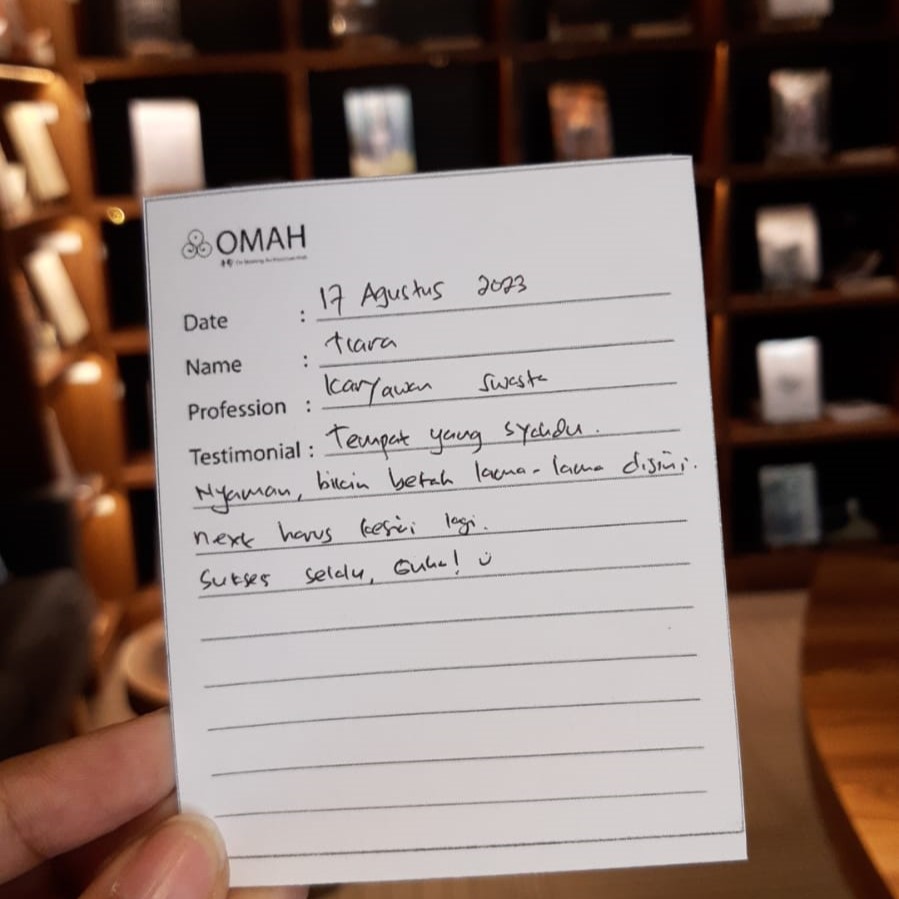 OMAH
Date : 17 Agustus 2023
Name : tiara
Profession : Karyawan Swasta
Testimonial : Tempat yang syahdu.
Nyaman, bikin betah lama-lama disini.
next harus kesini lagi.
Sukses selalu, Guha! ü